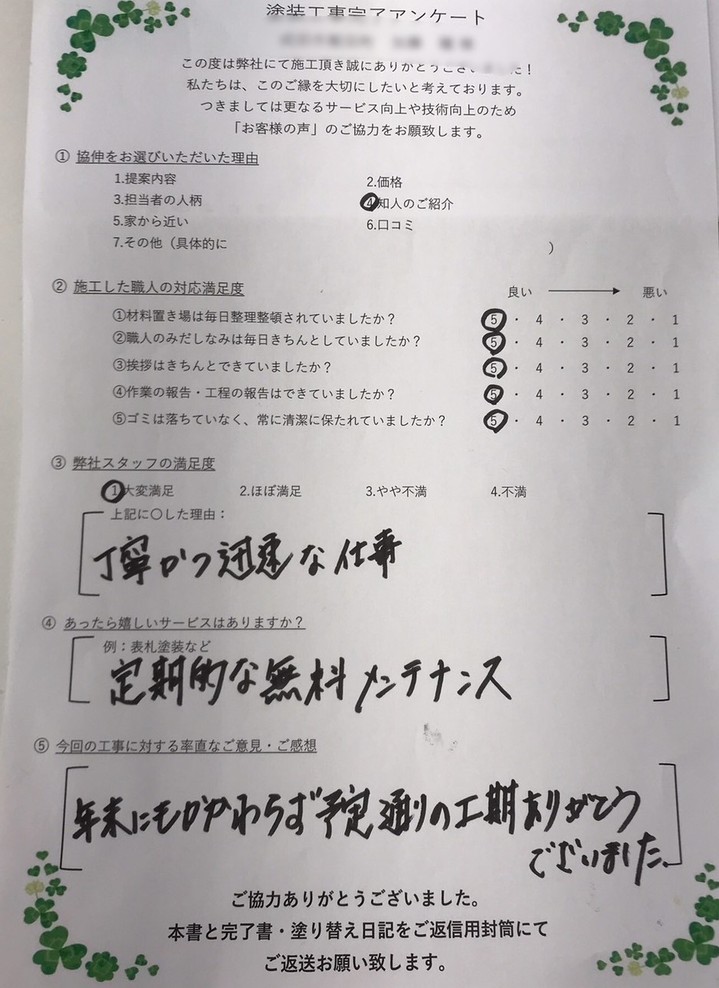 塗装工事完了アンケート
この度は弊社にて施工頂き誠にありがとうございました！
私たちは、このご縁を大切にしたいと考えております。
つきましては更なるサービス向上や技術向上のため
「お客様の声」のご協力をお願致します。
① 協伸をお選びいただいた理由
1.提案内容 2.価格
3.担当者の人柄 4知人のご紹介
5.家から近い 6.口コミ
7.その他（具体的に ）
② 施工した職人の対応満足度 良い 悪い
①材料置き場は毎日整理整頓されていましたか？ 5・4・3・2・1
②職人のみだしなみは毎日きちんとしていましたか？ 5・4・3・2・1
③挨拶はきちんとできていましたか？ 5・4・3・2・1
④作業の報告・工程の報告はできていましたか？ 5・4・3・2・1
⑤ゴミは落ちていなく、常に清潔に保たれていましたか？ 5・4・3・2・1
③ 弊社スタッフの満足度
1大変満足 2.ほぼ満足 3.やや不満 4.不満
上記に〇した理由：
丁寧かつ迅速な仕事
④ あったら嬉しいサービスはありますか？
例：表札塗装など
定期的な無料メンテナンス
⑤ 今回の工事に対する率直なご意見・ご感想
年末にもかかわらず予定通りの工期ありがとう
ございました。
ご協力ありがとうございました。
本書と完了書・塗り替え日記をご返信用封筒にて
ご返送お願い致します。